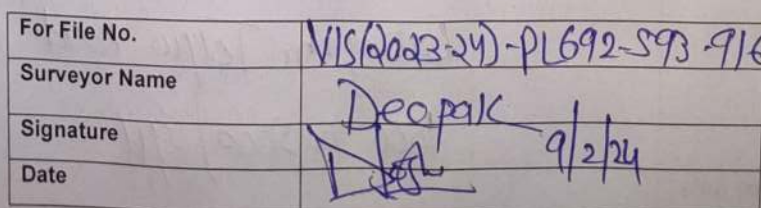 For File No. VIS(2023-24)-PL692-593-916
Surveyor Name Deepak
Signature
Date 9/2/24